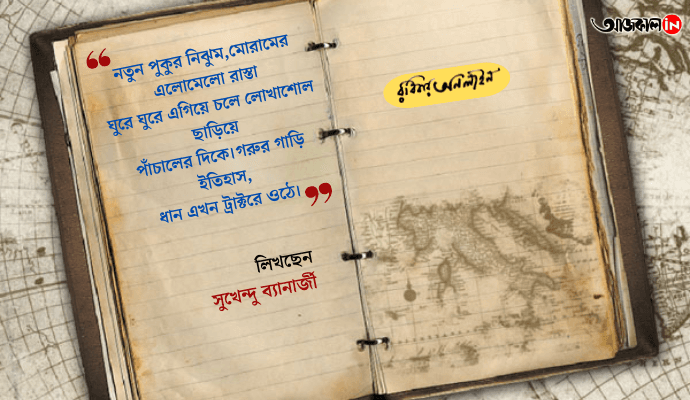 আজকাল in
নতুন পুকুর নিঝুম,মোরামের
এলোমেলো রাস্তা
ঘুরে ঘুরে এগিয়ে চলে লোখাশোল
ছাড়িয়ে
পাঁচালের দিকে।গরুর গাড়ি
ইতিহাস,
ধান এখন ট্রাক্টরে ওঠে।
লিখছেন
সুখেন্দু ব্যানার্জী
রবিবার অনলাইন